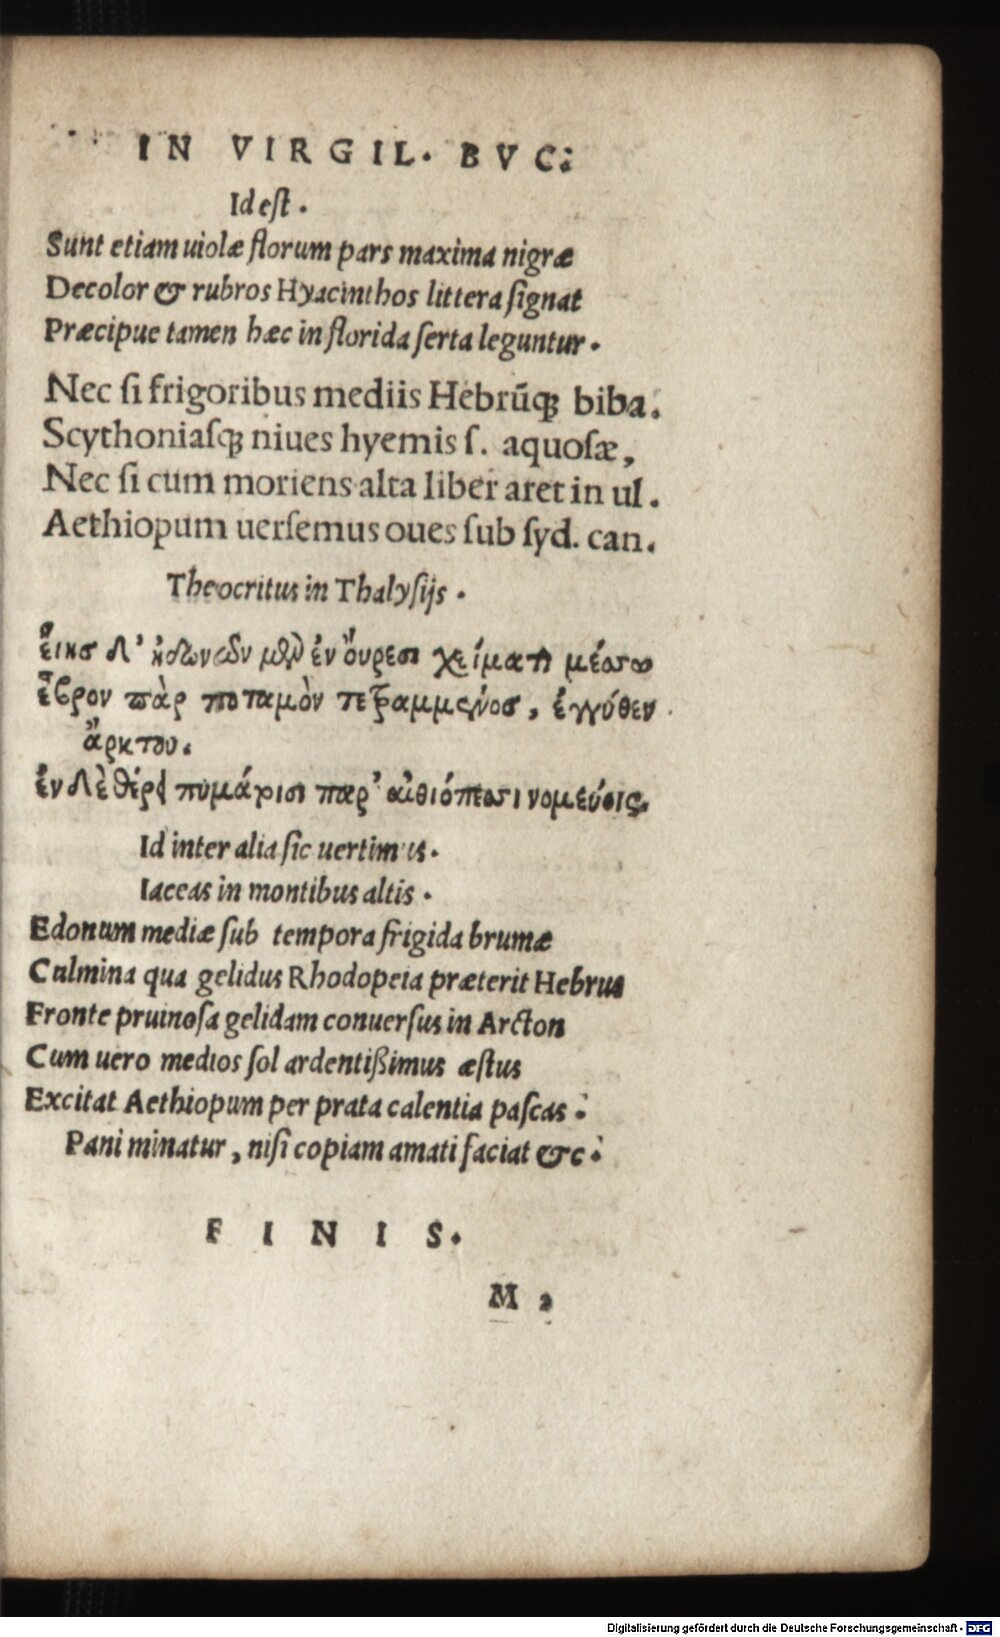 IN VIRGIL. BVC.
Id est.
Sunt etiam uiolæ florum pars maxima nigræ
Decolor & rubros Hyacinthos littera ſignat
Præcipue tamen hæc in florida ſerta leguntur.
Nec ſi frigoribus mediis Hebrūq; biba.
Scythoniaſq; niues hyemis ſ. aquoſæ,
Nec ſi cum moriens alta liber aret in ul.
Aethiopum uerſemus oues ſub ſyd. can.
Theocritus in Thalyſijs.
εἴης δ' ἠδωνῶν μὲν ἐν ὤυρεσι χείματι μέσσω
ἕβρον πὰρ ποταμὸν τετραμμένος, ἐγγύθεν
ἄρκτου.
ἐν δὲ θέρει πυμάτοισι παρ' αἰθιόπεσσι νομεύοις.
Id inter alia ſic uertimus.
Iaceas in montibus altis.
Edonum mediæ ſub tempora frigida brumæ
Culmina qua gelidus Rhodopeia præterit Hebrus
Fronte pruinoſa gelidam conuerſus in Arcton
Cum uero medios ſol ardentißimus æſtus
Excitat Aethiopum per prata calentia paſcas.
Pani minatur, niſi copiam amati faciat &c.
FINIS.
M
Digitalisierung gefördert durch die Deutsche Forschungsgemeinschaft - DFG